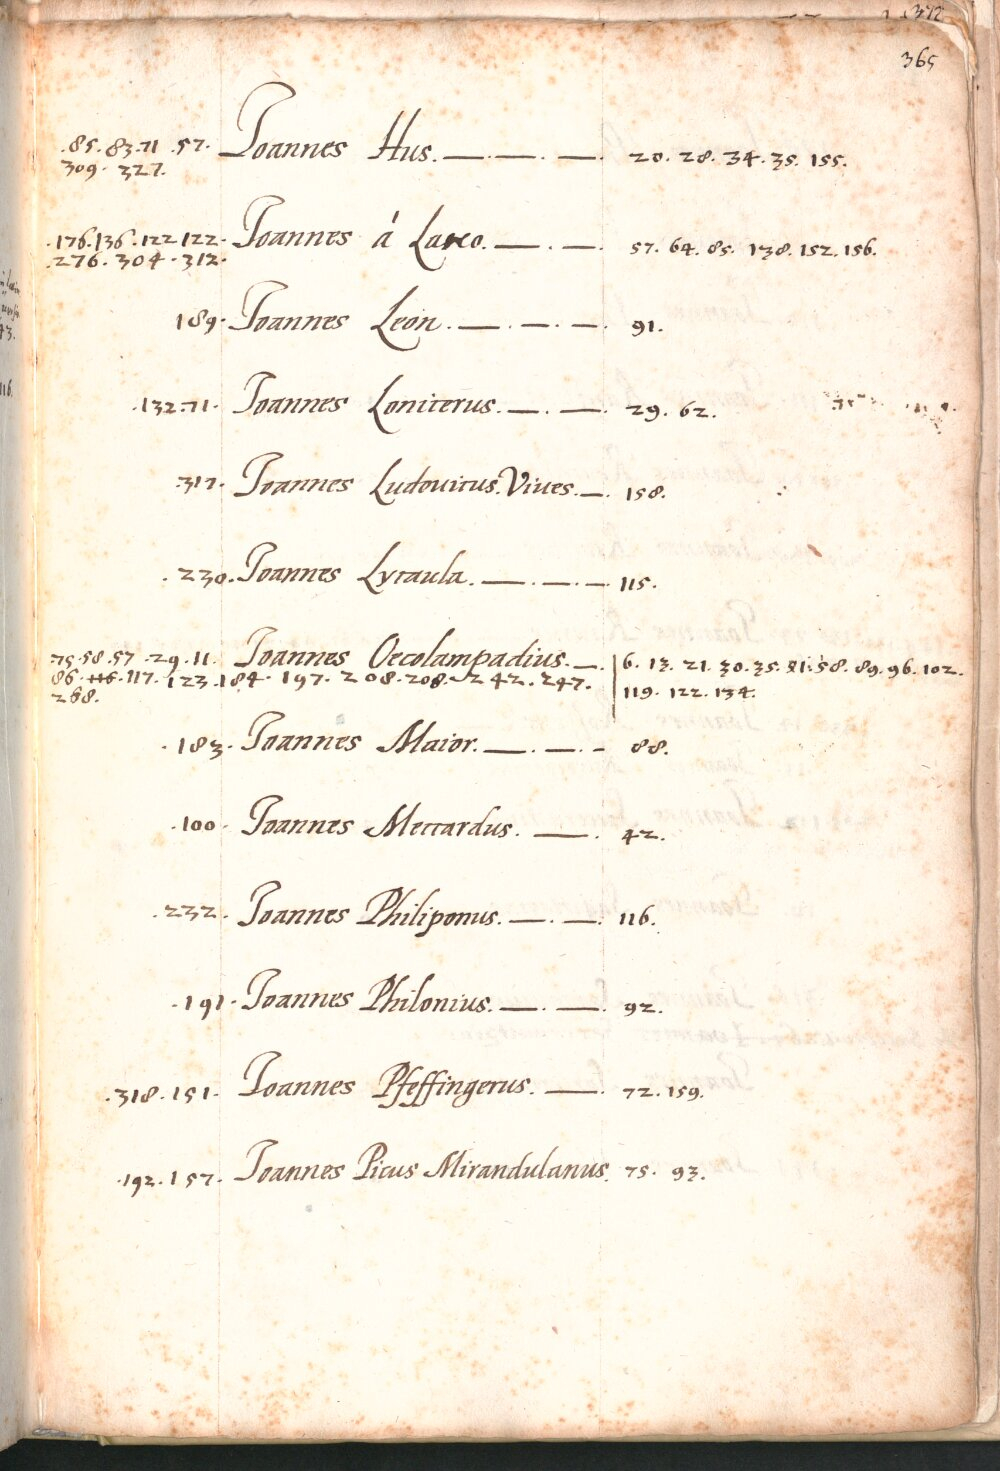 372
365
.85. 83. 71 .57. Joannes Hus. —.—.—. 20. 28. 34. 35. 155.
309. 327.
.176. 136. 122 122. Joannes á Lasco. —.—. 57. 64. 85. 138. 152. 156.
.276. 304. 312.
189. Joannes Leon. —.—.—. 91.
.132.71. Joannes Loniterus. —.—. 29. 62.
.317. Joannes Ludouicus Viues. —. 158.
.230. Joannes Lycaula. —.—.—. 115.
.75.58.57 .29.11. Joannes Oecolampadius. —. 6. 13. 21. 30. 35. 81. 58. 89. 96. 102.
86. 116. 117. 123. 184. 197. 208. 208. 242. 247. 119. 122. 134.
268.
.183. Joannes Maior. —.—.– 88.
.100. Joannes Meccardus. —. 42.
.232. Joannes Philiponus. —.—. 116.
.191. Joannes Philonius. —.—. 92.
.318. 151. Joannes Pfeffingerus. —. 72. 159.
.192. 157. Joannes Picus Mirandulanus. 75. 93.